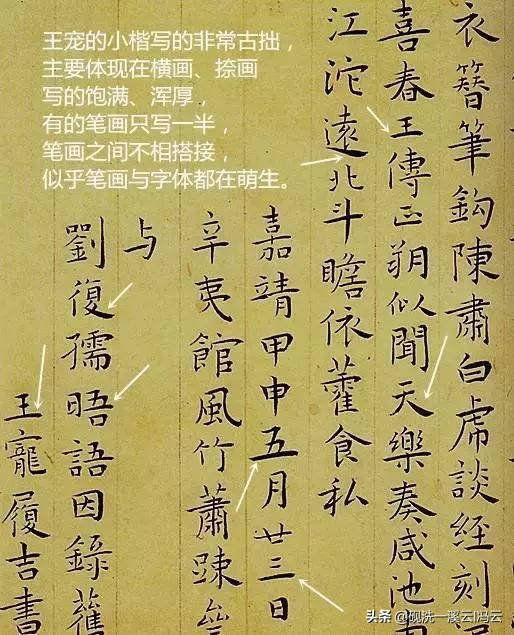 王宠的小楷写的非常古拙，
主要体现在横画、捺画
写的饱满、浑厚，
有的笔画只写一半，
笔画之间不相搭接，
似乎笔画与字体都在萌生。
衣簪筆鈎陳肅白虎談經刻
喜春王傳正朔似聞天樂奏咸池
江沱遠北斗瞻依藿食私
嘉靖甲申五月廿三日
辛夷館風竹蕭踈
与
劉復孺晤語因錄舊
王寵履吉書
头条 @砚洗一溪云冯云